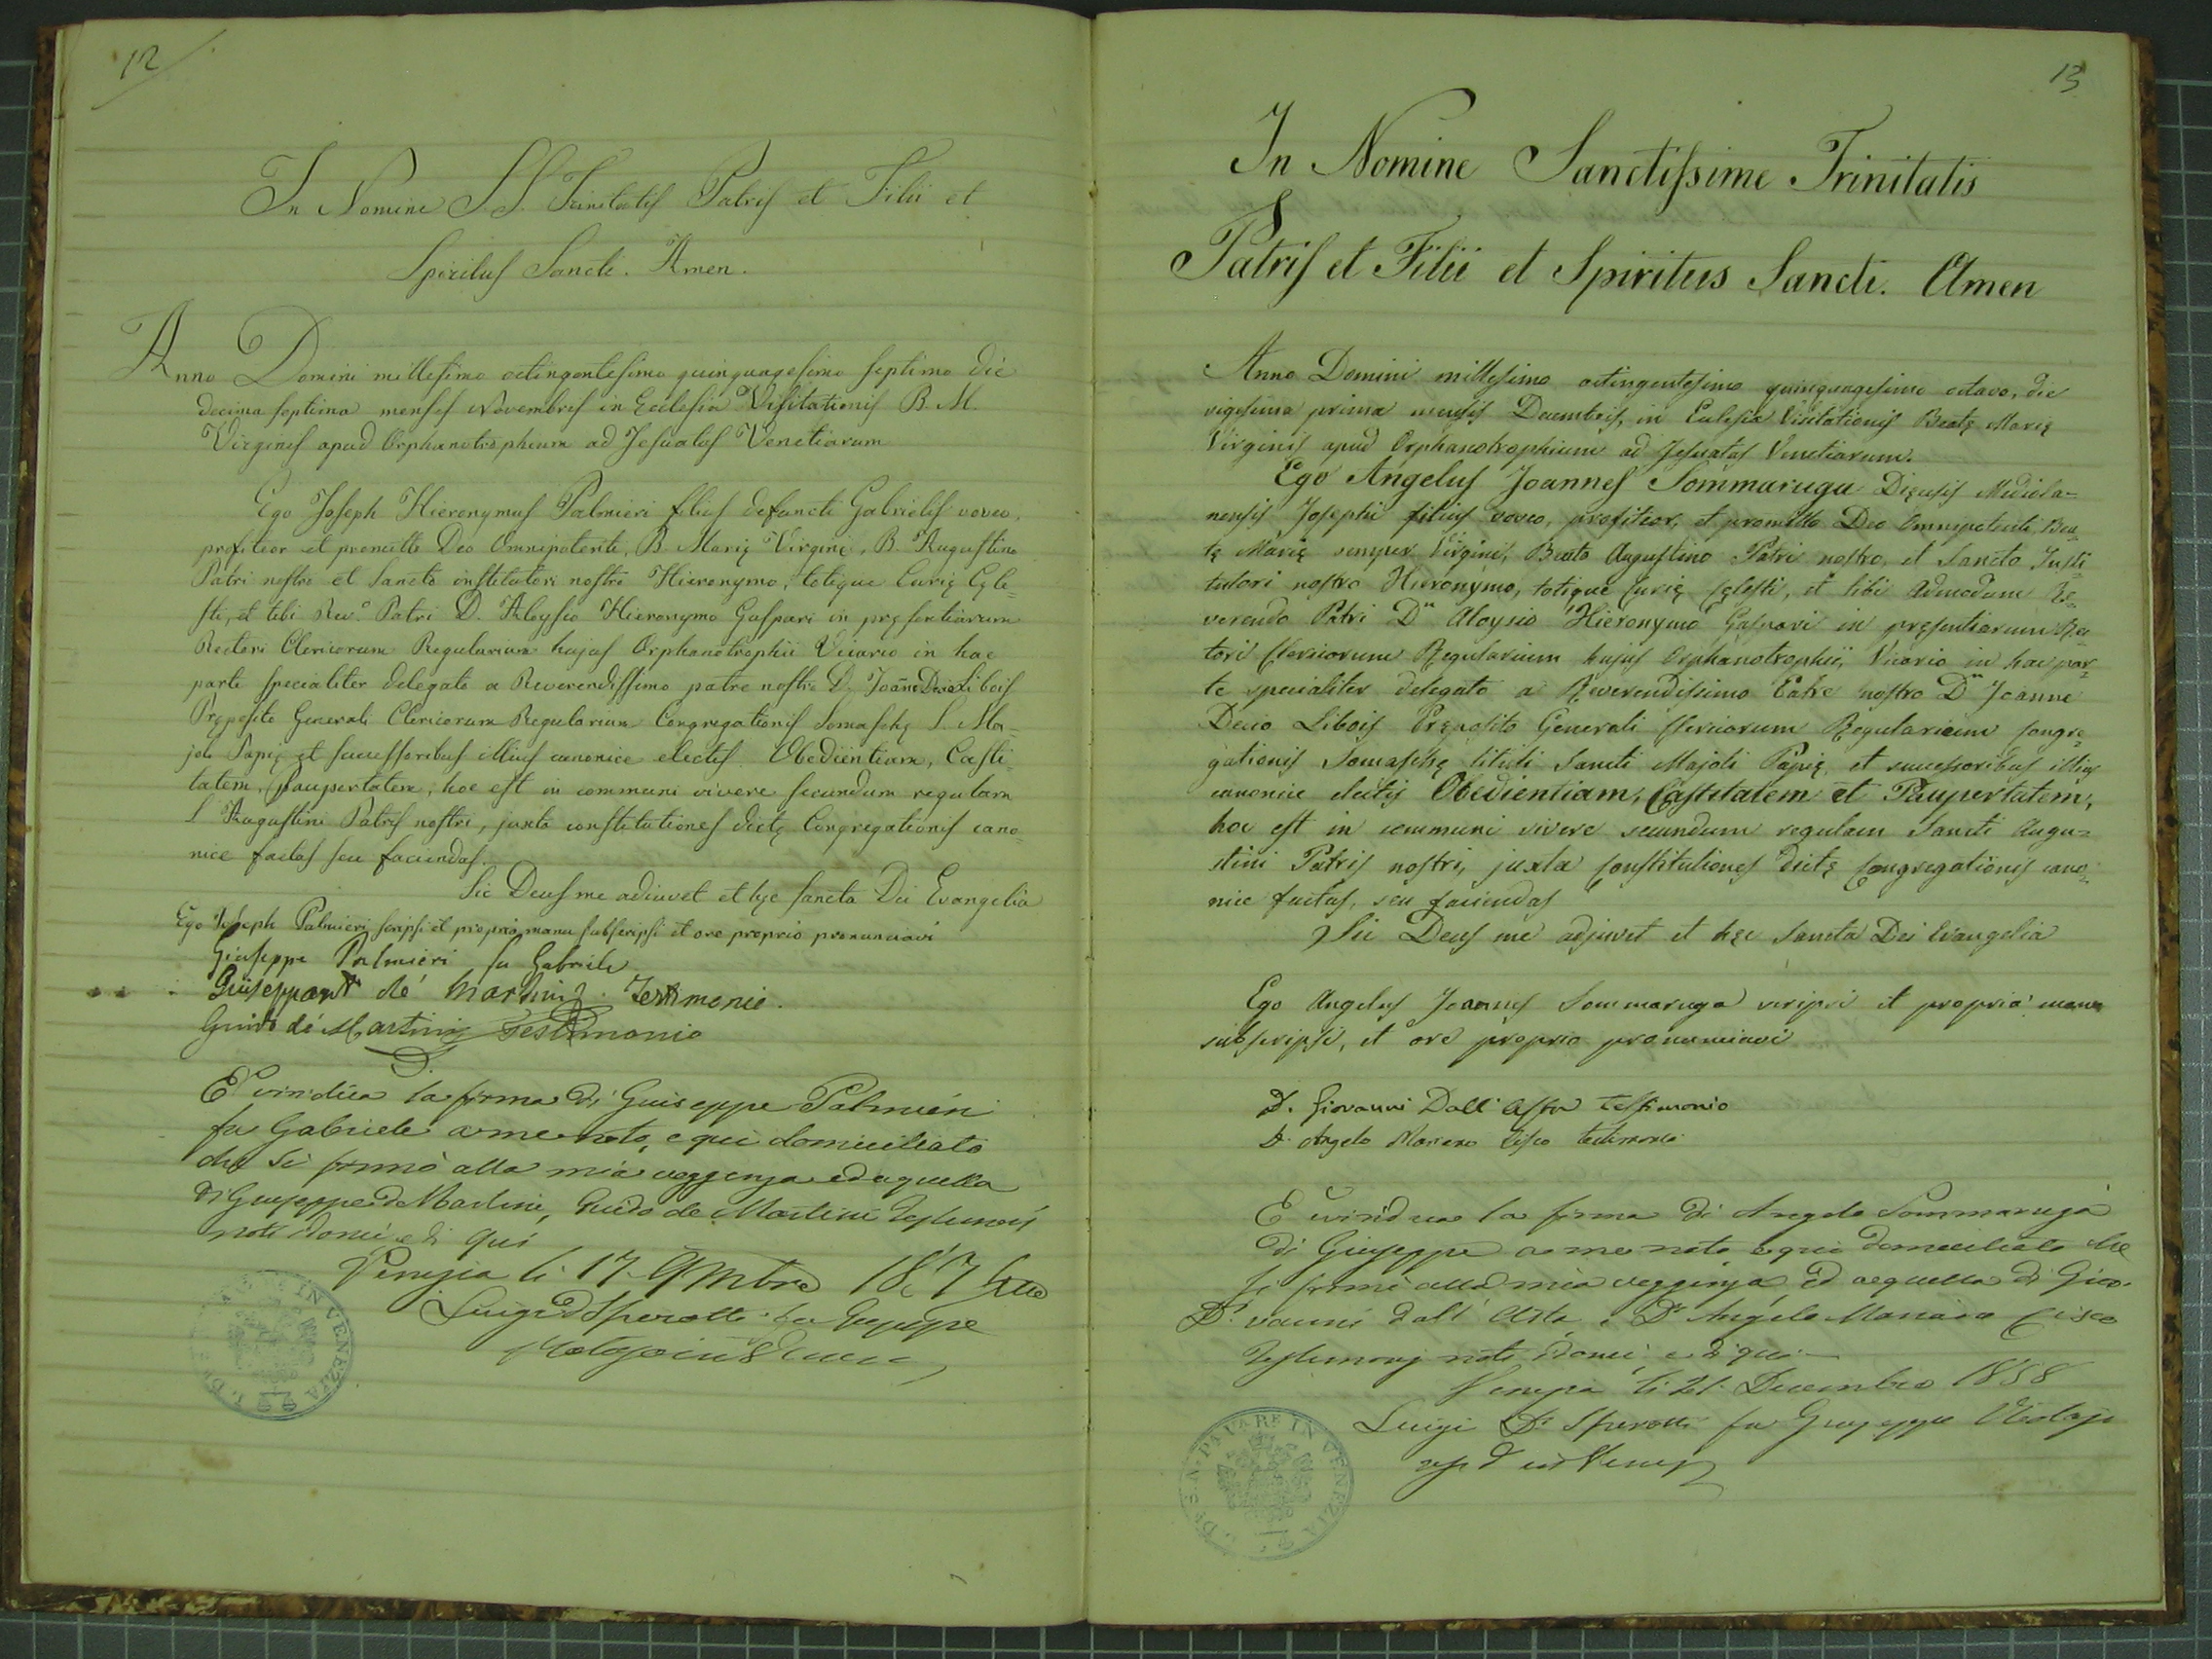 12
In Nomine S.S. Trinitatis Patris et Filii et
Spiritus Sancti. Amen.
Anno Domini millesimo octingentesimo quinquagesimo septimo die
decima septima menses Novembris in Ecclesia Visitationis B. M.
Virgines apud Orphanotrophium ad Jesuatos Venetiarum
Ego Joseph Hieronymus Palmieri filius defuncti Gabrielis voveo,
profiteor et promitto Deo Omnipotenti, B. Marię Virgini, B. Augustino
Patri nostro et Sancto institutori nostro Hieronymo, totique Curię Cęle-
sti, et tibi Rev.o Patri D. Aloysio Hieronymo Gaspari in pręsentiarum
Rectori Clericorum Regularium hujus Orphanotrophii Vicario in hac
parte specialiter delegato a Reverendissimo patre nostro D. Joãne Decio Libois
Pręposito Generali Clericorum Regularium Congregationis Somaschę S. Ma-
joli Papię et successoribus illius canonice electis Obedientiam, Casti-
tatem, Paupertatem, hoc est in communi vivere secundum regulam
S Augustini Patris nostri, juxta constitutiones dictę Congregationis cano-
nice factas seu faciendas.
Sic Deus me adiuvet et hęc sancta Dei Evangelia
Ego Joseph Palmieri scripsi et propria manu subscripsi et ore proprio pronunciavi
Giuseppe Palmieri fu Gabriele
Giuseppe de' Martini Testimonio.
Guido de' Martini Testimonio
E' viridica la firma di Guiseppe Palmieri
fu Gabriele a me noto, e qui domiciliato
che si firmò alla mia veggenza ed a quella
di Giuseppe de Martini, Guido de Martini Testimonj
noti idonei e di qui
Venezia li 17 9mbre
Luigi Dr Sperotti fu Giuseppe
IN VENEZIA
13
In Nomine Sanctissime Trinitatis
Patris et Filii et Spiritus Sancti. Amen
Anno Domini millesimo octingentesimo quinquagesimo octavo, die
vigesima prima mensis Decembris, in Eclesia Visitationis Beatę Marię
Virginis apud Orphanotrophium ad Jesuatas Venetiarum.
Ego Angelus Joannes Sommaruga Dięcesis Mediola=
nensis Josephi filius voveo, profiteor, et promitto Deo Omnipotenti, Bea-
tę Marię semper Virgini, Beato Augustino Patri nostro, et Sancto Insti-
tutori nostro Hieronymo, totique Curię Cęlesti, et tibi Admodum Re-
verendo Patri Dn Aloysio Hieronymo Gaspari in pręsentiarum Rec
tori Clericorum Regularium hujus Orphanotrophii, Vicario in hac par-
te specialiter delegato a Reverendissimo Patre nostro Dn Joanne
Decio Libois Pręposito Generali Clericorum Regularium Congre-
gationis Somaschę tituli Sancti Majoli Papię, et successoribus illius
canonice electis Obedientiam, Castitatem et Paupertatem,
hoc est in communi vivere secundum regulam Sancti Augu=
stini Patris nostri, juxta Constitutiones dictę Congregationis cano-
nice factas, seu faciendas
Sic Deus me adjuvet et hęc Sancta Dei Evangelia
Ego Angelus Joannes Sommaruga scripsi et propria manu
subscripsi, et ore proprio pronunciavi
D. Giovanni Dall'Asta testimonio
D. Angelo testimonio
E viridica la firma di Angelo Sommaruga
di Giuseppe a me noto e qui domiciliato che
si firmò alla mia veggenza, ed a quella di Gio-
Dn vanni dall'Asta, e Dn Angelo
Testimonj noti idonei e di qui
Venezia li 21 Decembre 1858
Luigi Dr Sperotti fu Giuseppe Notajo
IN VENEZIA